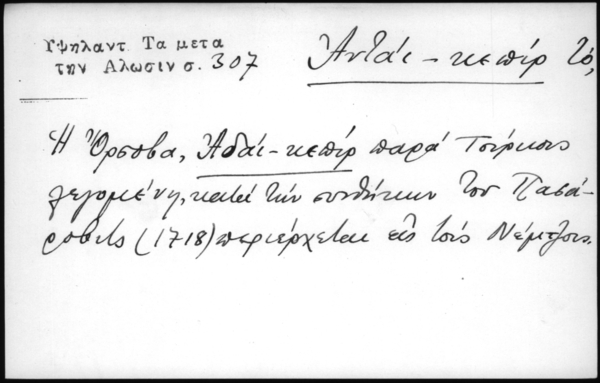 Υψηλαντ. Τα μετα
την Αλωσιν σ. 307
Ἀντάι-κεπίρ τό,
Ἡ Ὀρσοβα, Ἀδάι-κεπίρ παρά Τούρκοις
λεγομένη, κατά τήν συνθήκην τοῦ Πασά-
ροβιτς (1718) περιέρχεται εἰς τούς Νέμτζους.